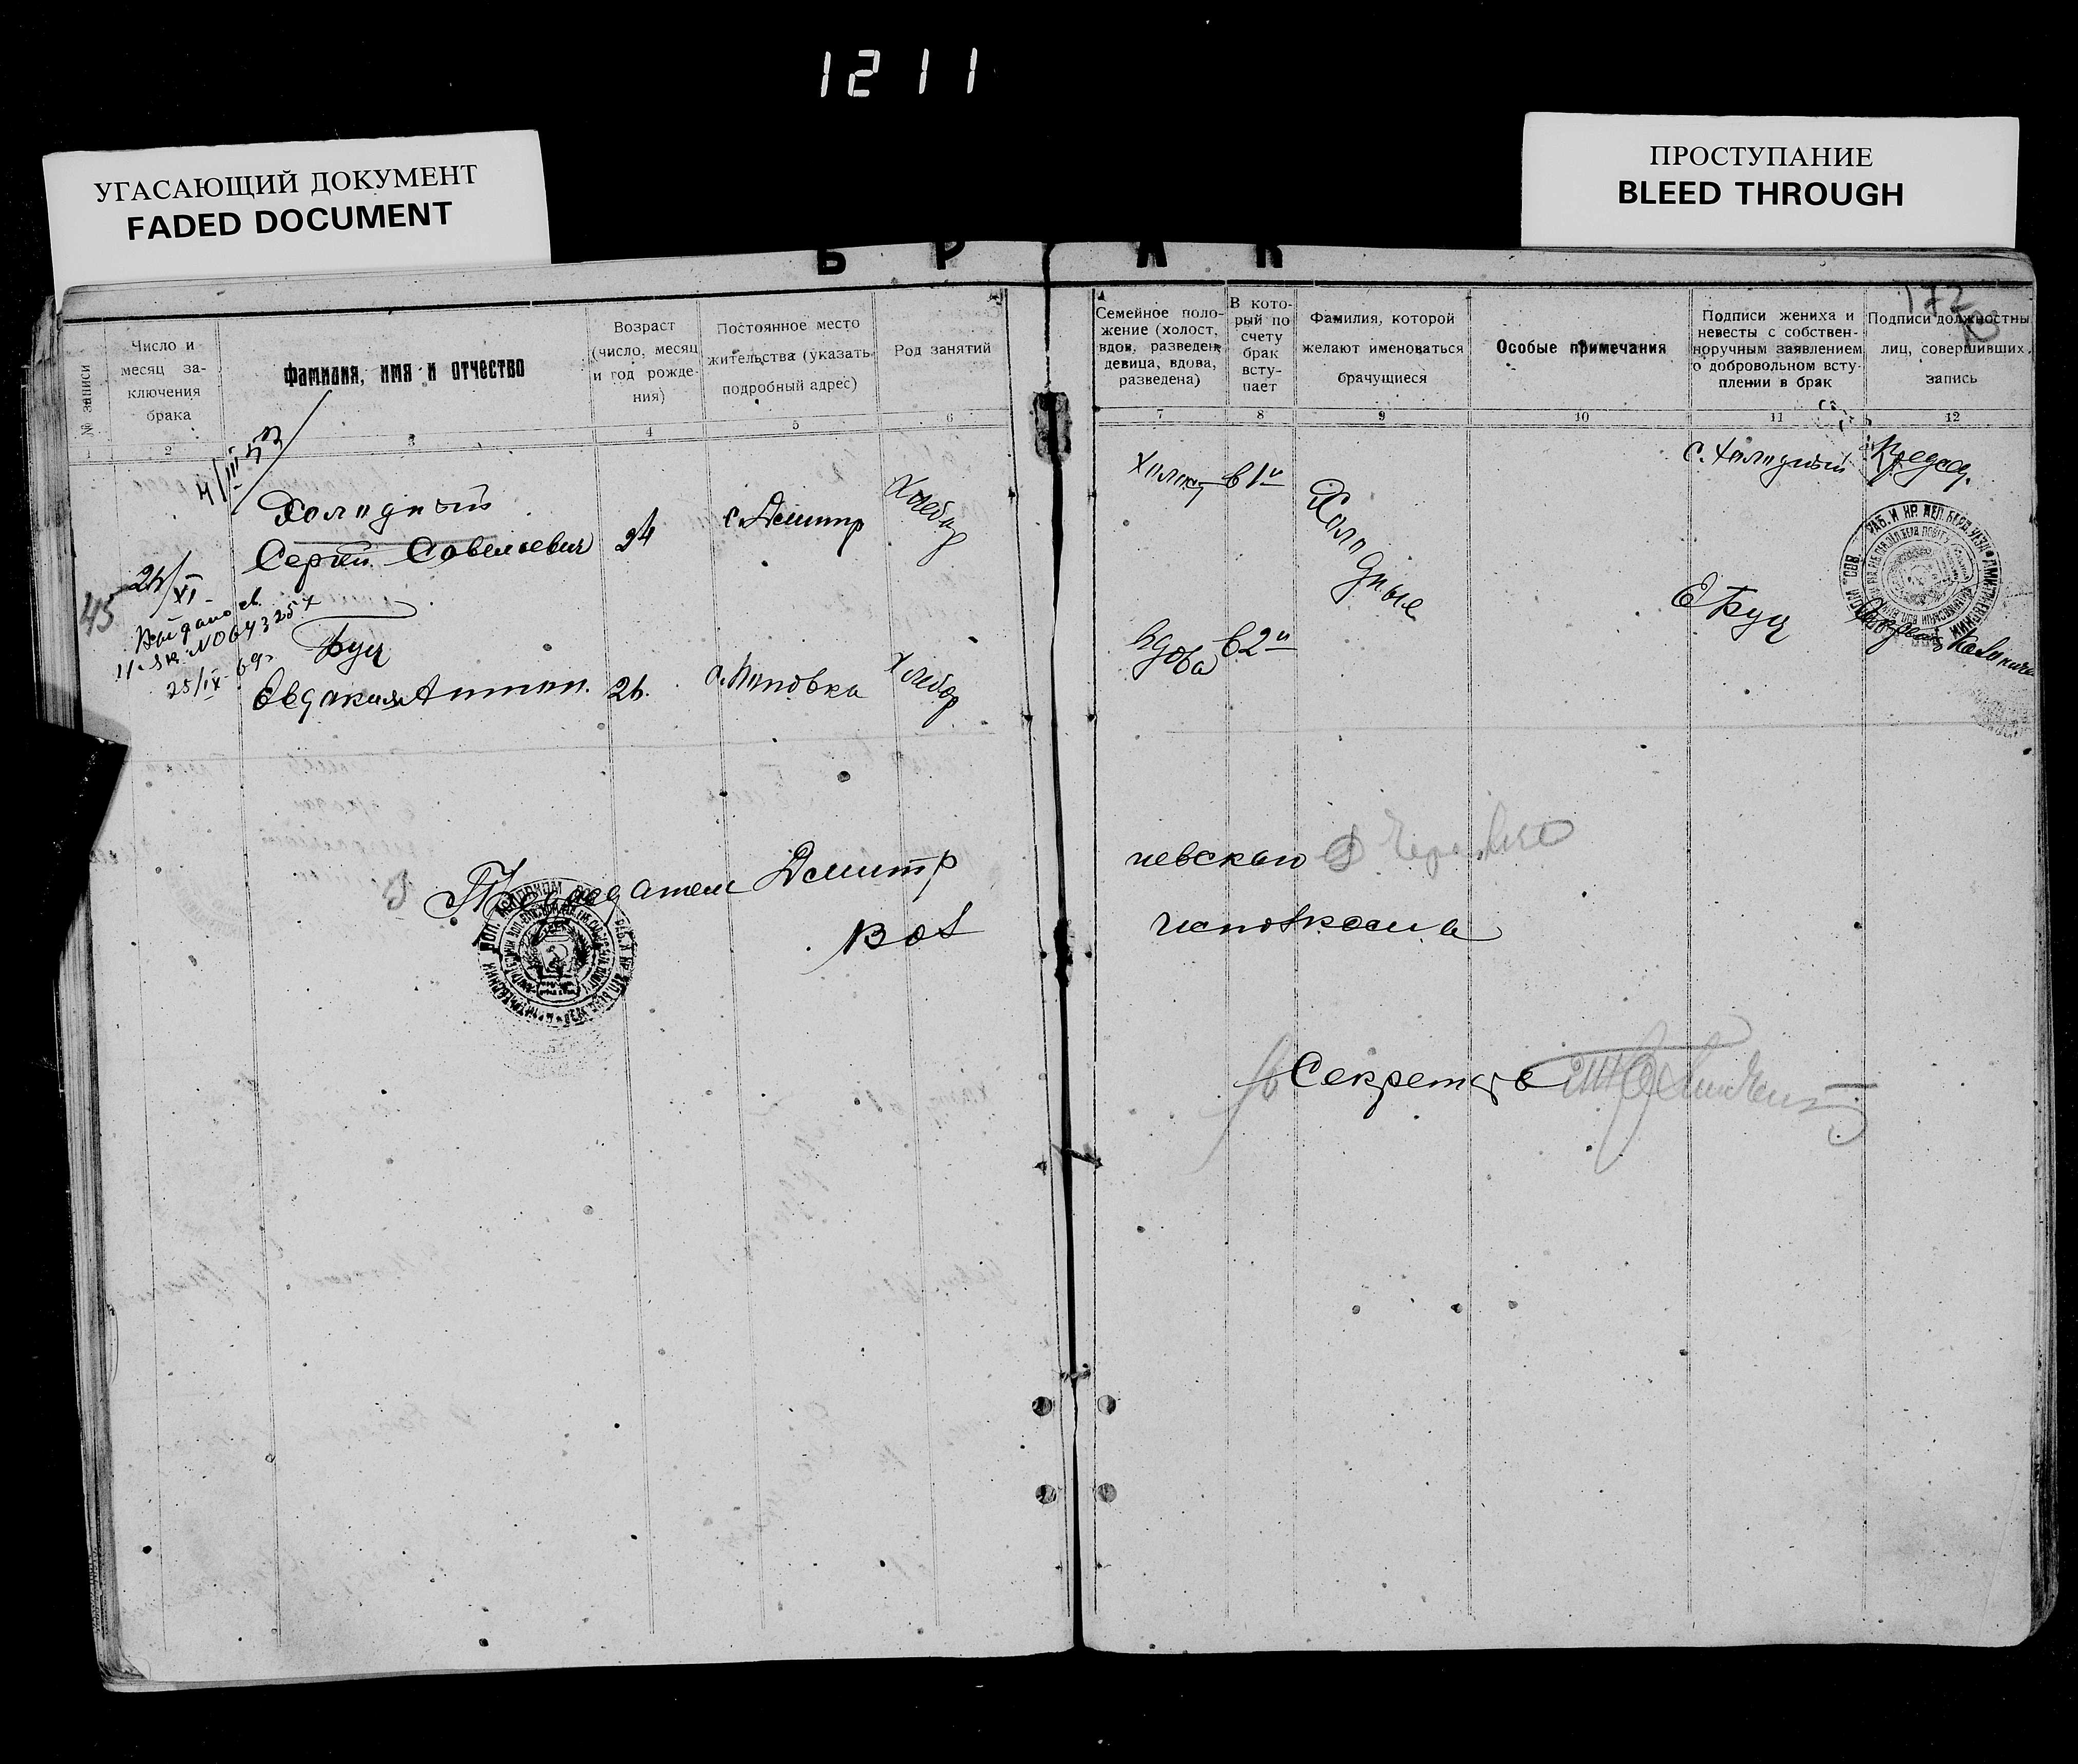 1211
УГАСАЮЩИЙ ДОКУМЕНТ
FADED DOCUMENT
ПРОСТУПАНИЕ
BLEED THROUGH
Б Р А К
172
№ записи
Число и
месяц за-
ключения
брака
Фамилия, имя и отчество
Возраст
(число, месяц
и год рожде-
ния)
Постоянное место
жительства (указать
подробный адрес)
Род занятий
Семейное поло-
жение (холост,
вдов, разведен,
девица, вдова,
разведена)
В кото-
рый по
счету
брак
всту-
пает
Фамилия, которой
желают именоваться
брачущиеся
Особые примечания
Подписи жениха и
невесты с собствен-
норучным заявлением
о добровольном всту-
плении в брак
Подписи должностны
лиц, совершивших
запись
1 2 3 4 5 6 7 8 9 10 11 12
4/III 53
Холодный
Сергей Савельевич
24
с. Дмитр
Хлебор
Холост
в 1й
Холодные
С. Холодный
Председ.
45
24/XI
Выдано св.
25/IX-69г
Буц
Евдокия Антон.
24
с. Поповка
Хлебор
Вдова
в 2й
Е Буц
Секретарь
Председатель Дмитр
иевского
Вол
исполкома
Секретарь